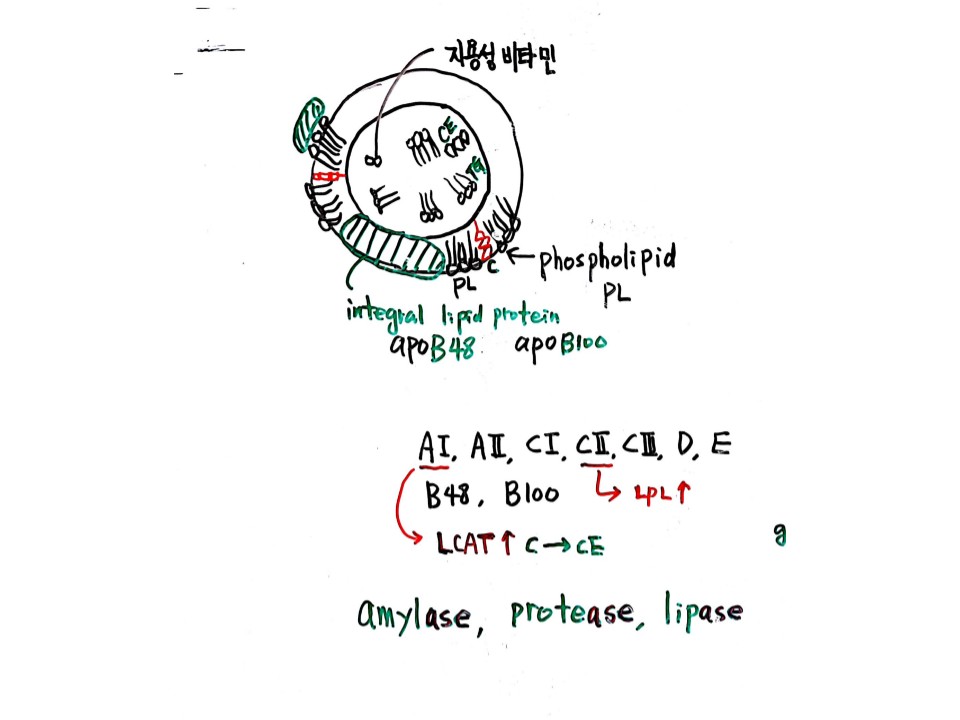 지용성 비타민
CE
TG
C
phospholipid
PL
PL
integral lipid protein
apoB48 apoB100
AI, AII, CI, CII, CIII, D, E
B48, B100 → LPL↑
LCAT↑ C→CE
g
amylase, protease, lipase